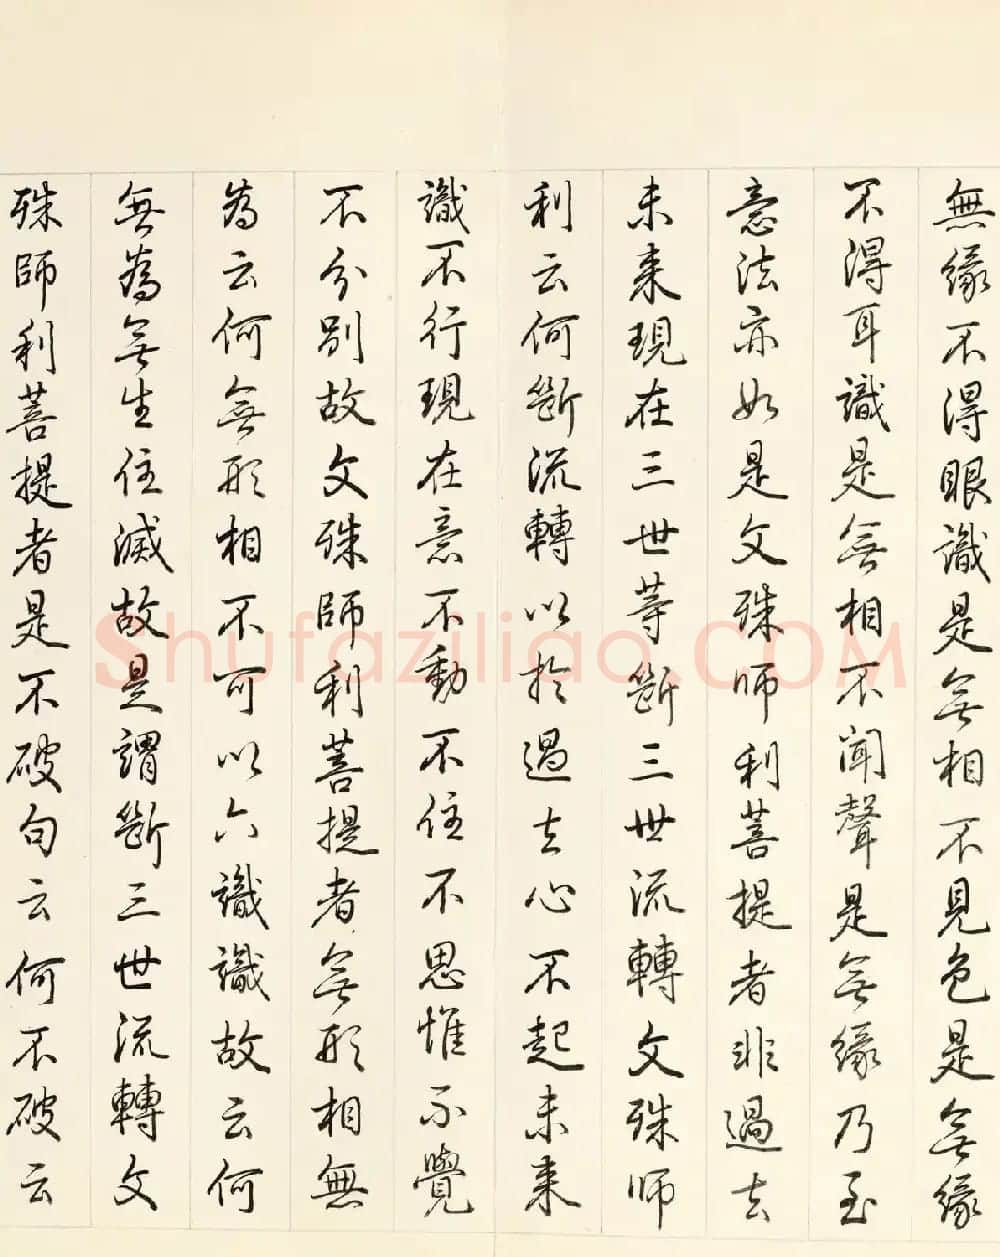 無緣不得眼識是無相不見色是無緣
不得耳識是無相不聞聲是無緣乃至
意法亦如是文殊師利菩提者非過去
未来現在三世等斷三世流轉文殊師
利云何斷流轉以於過去心不起未来
識不行現在意不動不住不思惟不覺
不分別故文殊師利菩提者無形相無
為云何無形相不可以六識識故云何
無為無生住滅故是謂斷三世流轉文
殊師利菩提者是不破句云何不破云
Shufaziliao.COM